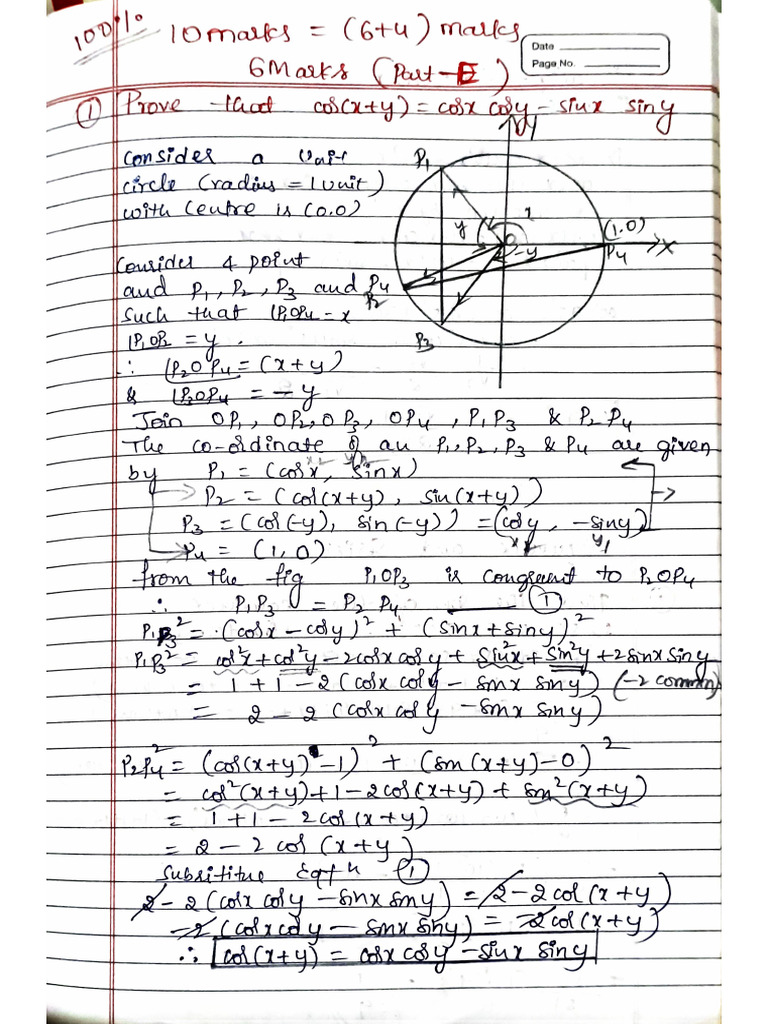 100%
10 marks = (6+4) marks
6 Marks (Part-E)
Date
Page No.
① Prove that cos(x+y) = cosx cosy - sinx siny
Consider a Unit
circle (radius = 1 unit)
with centre is (0.0)
Consider 4 point
and P1, P2, P3 and P4
such that ∠P1OP4 = x
∠P1OP2 = y.
∴ ∠P2OP4 = (x+y)
& ∠P3OP4 = -y
P1
y
y
x
O
-y
(1.0)
P4
X
P2
P3
Join OP1, OP2, OP3, OP4, P1P3 & P2P4
The co-ordinate of an P1, P2, P3 & P4 are given
by P1 = (cosx, sinx)
P2 = (cos(x+y), sin(x+y))
P3 = (cos(-y), sin(-y)) = (cosy, -siny)
P4 = (1,0)
from the fig P1OP3 is congruent to P2OP4
∴ P1P3 = P2P4 ①
P1P3² = (cosx - cosy)² + (sinx + siny)²
P1P3² = cos²x + cos²y - 2cosx cosy + sin²x + sin²y + 2sinx siny
= 1+1-2(cosx cosy - sinx siny) (-2 common)
= 2-2(cosx cosy - sinx siny)
P2P4² = (cos(x+y) - 1)² + (sin(x+y)-0)²
= cos²(x+y)+1-2cos(x+y) + sin²(x+y)
= 1+1-2cos(x+y)
= 2-2 cos (x+y)
Subsititue Eqth ①
2-2(cosx cosy - sinx siny) = 2-2cos(x+y)
-2(cosx cosy - sinx siny) = -2cos(x+y)
∴ cos(x+y) = cosx cosy - sinx siny